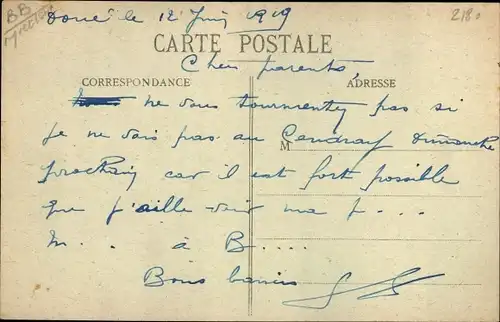 Doué le 12 Juin 1919
218
CARTE POSTALE
Chers parents,
CORRESPONDANCE
ADRESSE
ne vous tourmentez pas si
je ne vais pas au Dimanche
M
prochain car il est fort possible
que j'aille voir ma f....
M. . à B....
Bons baisers